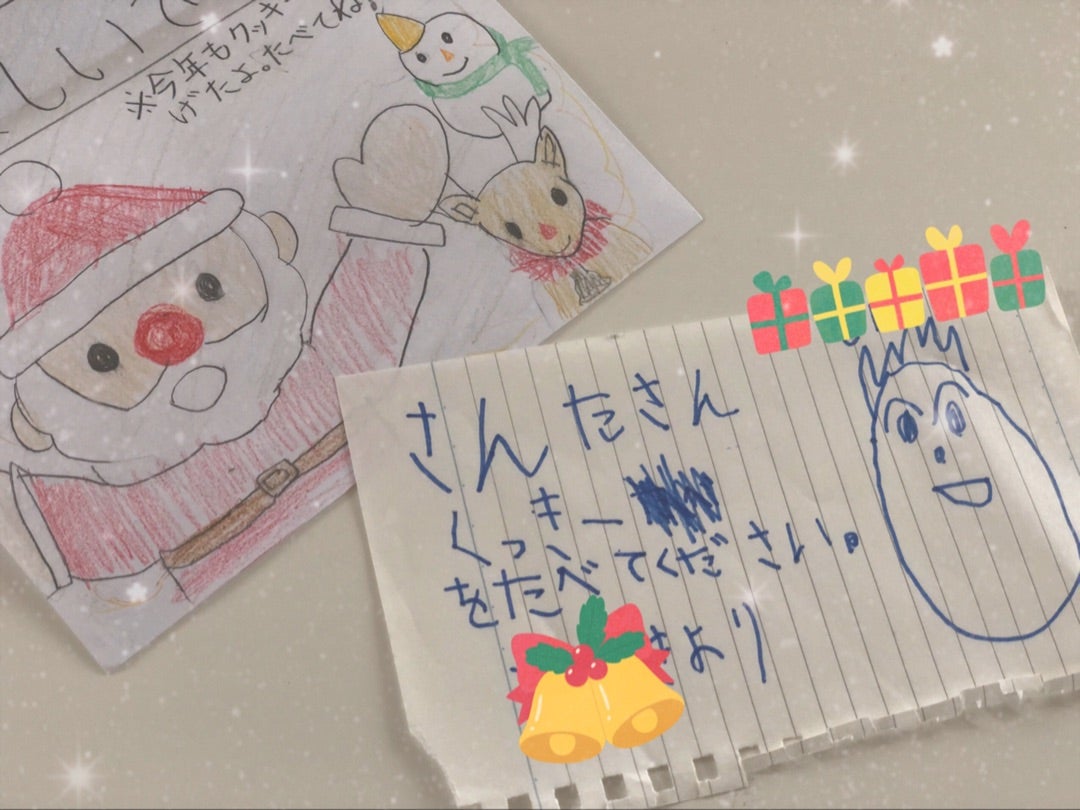 しいで
※今年もクッキー
げたよ。たべてね!
さんたさん
くっきー
をたべてください。
より